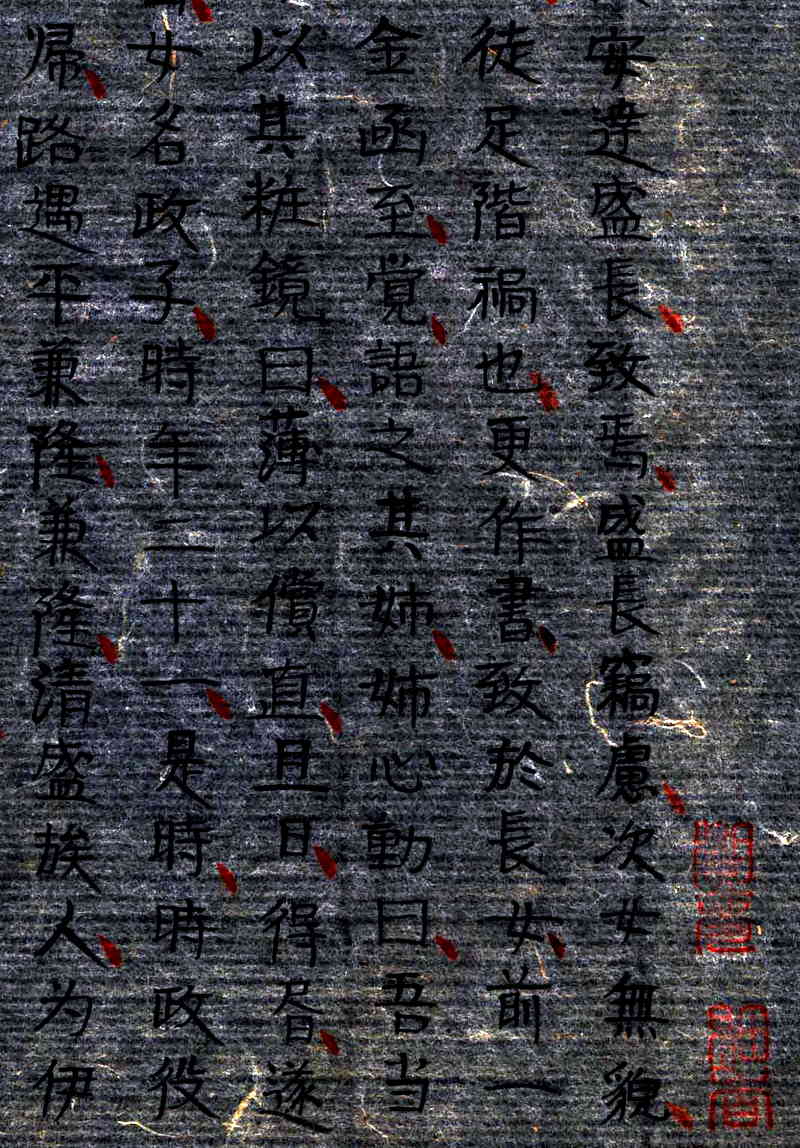 安達盛長致焉盛長竊慮次女無貌
徒足階禍也更作書致於長女前一
金函至覚語之其姉姉心動曰吾当
以其粧鏡曰薄以償直且日得昏遂
女名政子時年二十一是時時政役
帰路遇平兼隆兼隆清盛族人为伊